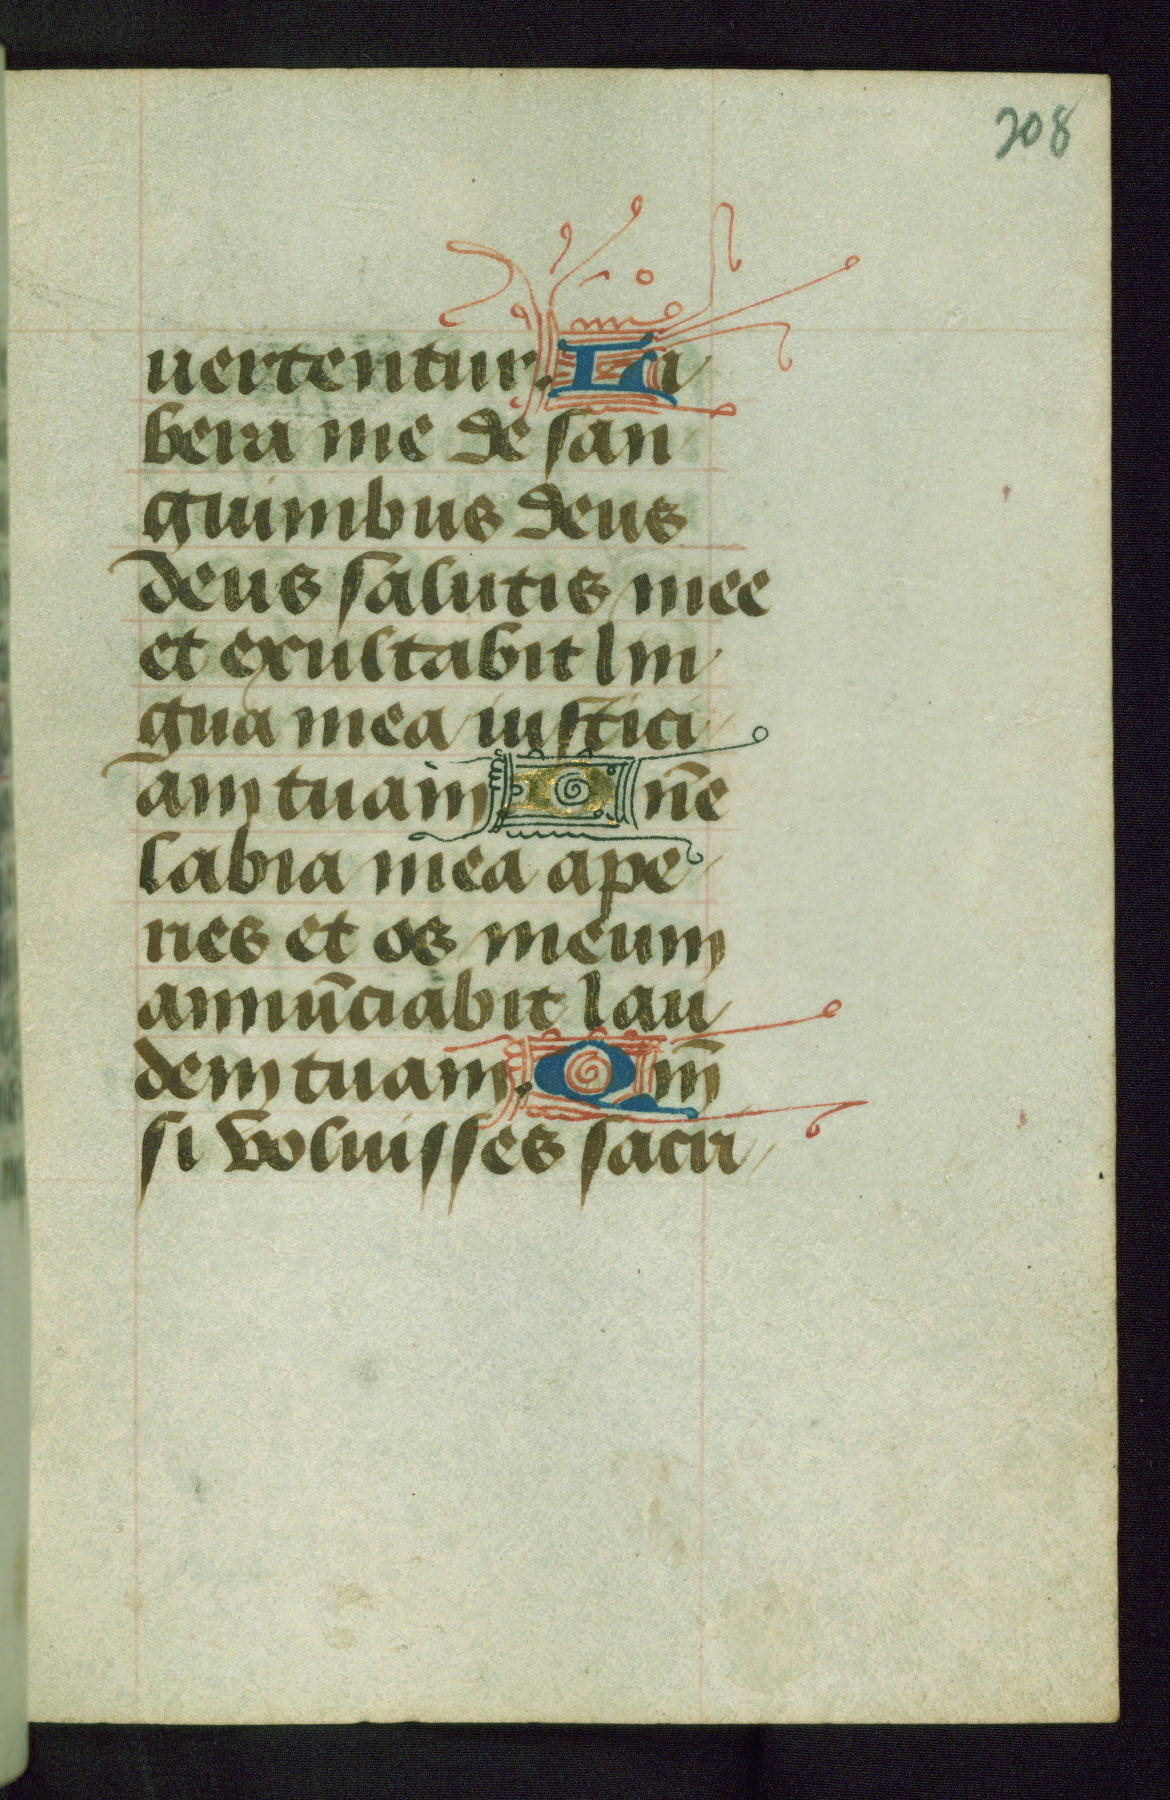 208
uertentur. Li
bera me de san
guinibus deus
deus salutis mee
et exultabit lin
gua mea iustici
am tuam. Dñe
labia mea ape
ries et os meum
annūciabit lau
dem tuam. Qm̄
si voluisses sacri